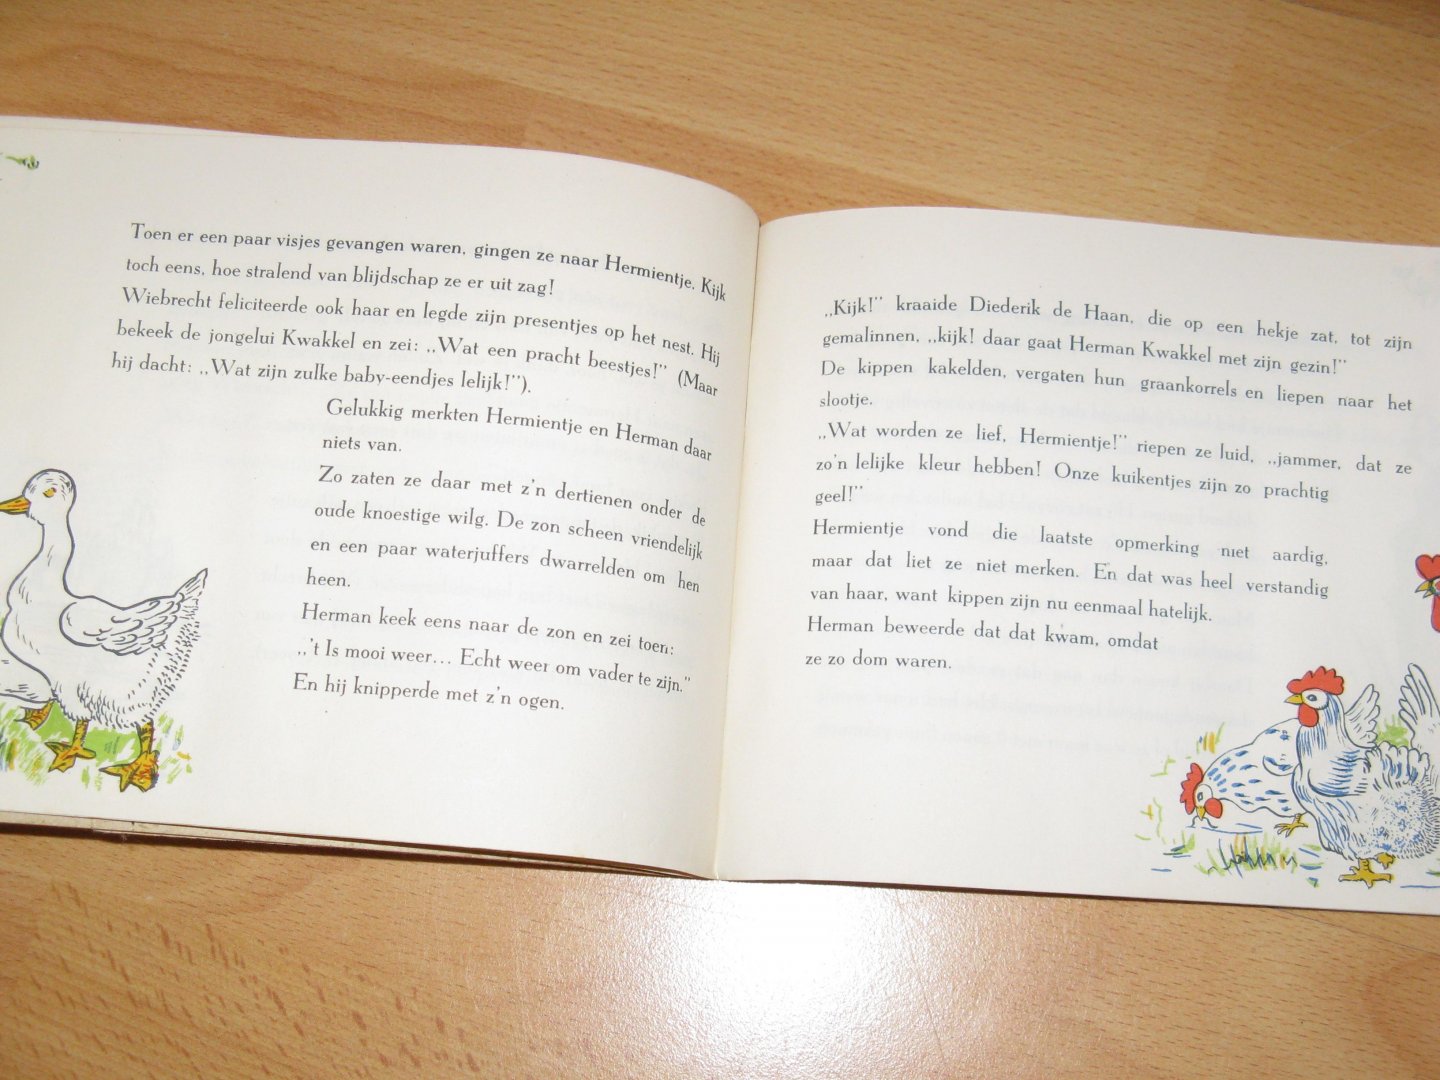 Toen er een paar visjes gevangen waren, gingen ze naar Hermientje. Kijk
toch eens, hoe stralend van blijdschap ze er uit zag!
Wiebrecht feliciteerde ook haar en legde zijn presentjes op het nest. Hij
bekeek de jongelui Kwakkel en zei: „Wat een pracht beestjes!” (Maar
hij dacht: „Wat zijn zulke baby-eendjes lelijk!”).
Gelukkig merkten Hermientje en Herman daar
niets van.
Zo zaten ze daar met z'n dertienen onder de
oude knoestige wilg. De zon scheen vriendelijk
en een paar waterjuffers dwarrelden om hen
heen.
Herman keek eens naar de zon en zei toen:
„'t Is mooi weer... Echt weer om vader te zijn.”
En hij knipperde met z'n ogen.
„Kijk!” kraaide Diederik de Haan, die op een hekje zat, tot zijn
gemalinnen, „kijk! daar gaat Herman Kwakkel met zijn gezin!”
De kippen kakelden, vergaten hun graankorrels en liepen naar het
slootje.
„Wat worden ze lief, Hermientje!” riepen ze luid, „jammer, dat ze
zo'n lelijke kleur hebben! Onze kuikentjes zijn zo prachtig
geel!”
Hermientje vond die laatste opmerking niet aardig,
maar dat liet ze niet merken. En dat was heel verstandig
van haar, want kippen zijn nu eenmaal hatelijk.
Herman beweerde dat dat kwam, omdat
ze zo dom waren.